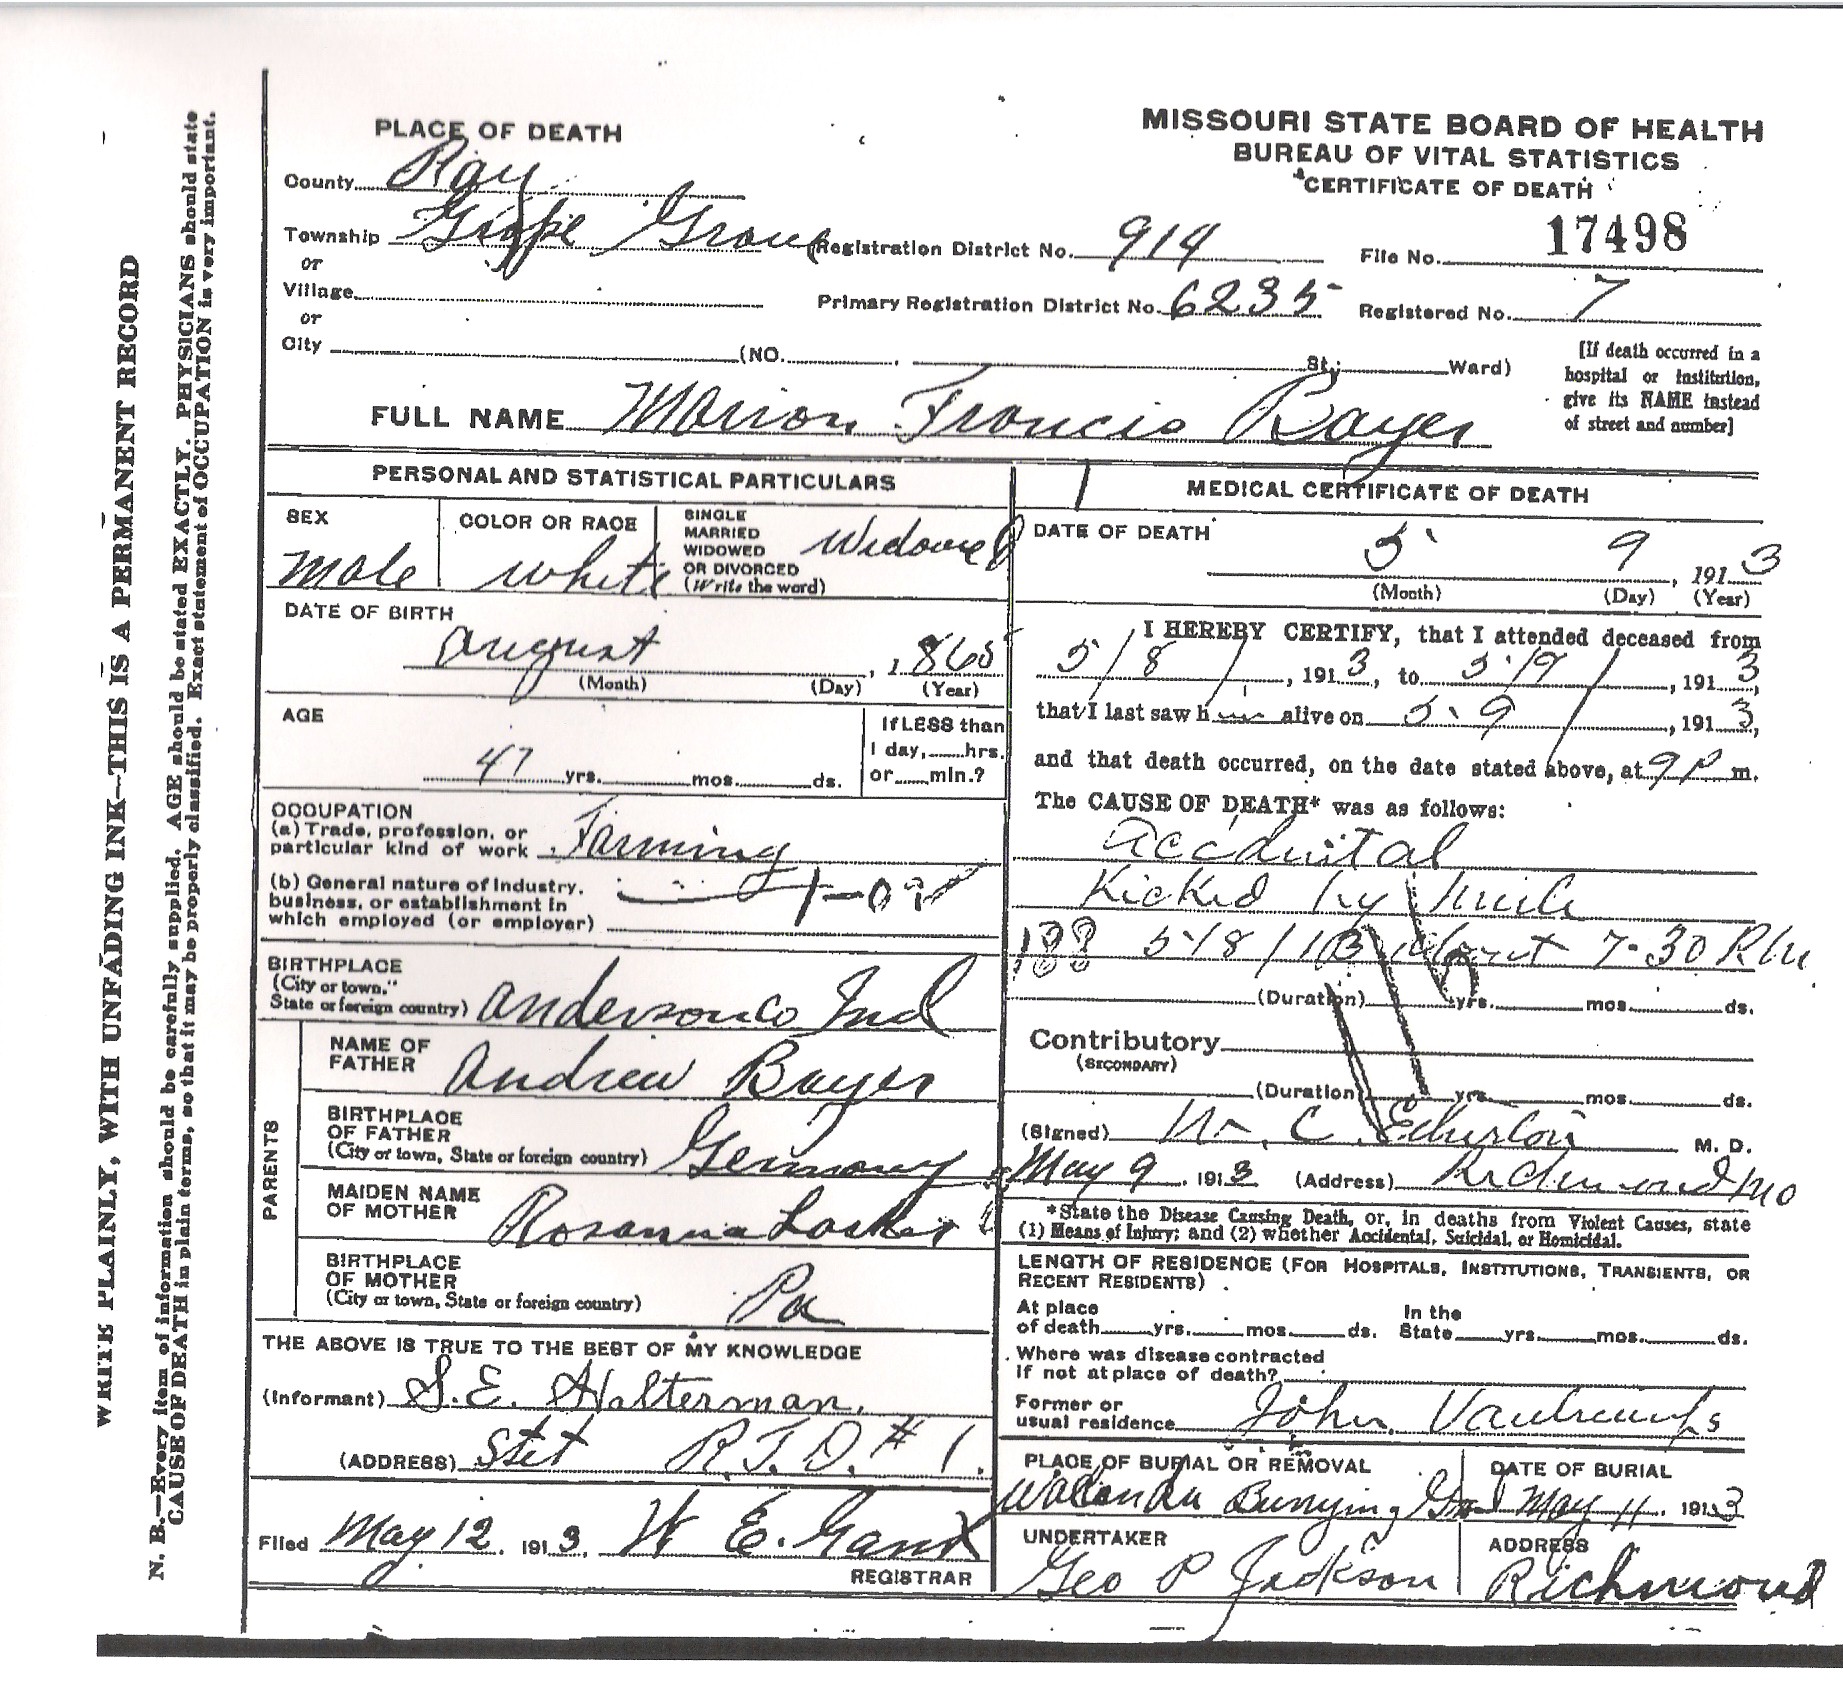 WRITE PLAINLY, WITH UNFADING INK—THIS IS A PERMANENT RECORD
N. B.—Every item of information should be carefully supplied. AGE should be stated EXACTLY. PHYSICIANS should state
CAUSE OF DEATH in plain terms, so that it may be properly classified. Exact statement of OCCUPATION is very important.
MISSOURI STATE BOARD OF HEALTH
BUREAU OF VITAL STATISTICS
CERTIFICATE OF DEATH
PLACE OF DEATH
County Ray
Township Grape Grove Registration District No. 914 File No. 17498
or
Village Primary Registration District No. 6235 Registered No. 7
or
City (NO. St; Ward)
[If death occurred in a
hospital or institution,
give its NAME instead
of street and number]
FULL NAME Marion Francis Bayer
PERSONAL AND STATISTICAL PARTICULARS
SEX
male
COLOR OR RACE
white
SINGLE
MARRIED
WIDOWED
OR DIVORCED
(Write the word)
Widowed
DATE OF BIRTH
august , 1865
(Month) (Day) (Year)
AGE
47 yrs. mos. ds.
If LESS than
1 day, hrs.
or min.?
OCCUPATION
(a) Trade, profession, or
particular kind of work Farming
(b) General nature of Industry,
business, or establishment in
which employed (or employer)
BIRTHPLACE
(City or town,
State or foreign country) anderson co Ind
PARENTS
NAME OF
FATHER Andrew Bayer
BIRTHPLACE
OF FATHER
(City or town, State or foreign country) Germany
MAIDEN NAME
OF MOTHER Rosanna
BIRTHPLACE
OF MOTHER
(City or town, State or foreign country) Pa
THE ABOVE IS TRUE TO THE BEST OF MY KNOWLEDGE
(Informant) S. E. Halterman.
(ADDRESS) Stet R.F.D. # 1.
Filed May 12. 1913. W E. Gant
REGISTRAR
MEDICAL CERTIFICATE OF DEATH
DATE OF DEATH
5 9 , 1913
(Month) (Day) (Year)
I HEREBY CERTIFY, that I attended deceased from
5/8/ , 1913, to 5/9/ , 1913,
that I last saw him alive on 5.9/ , 1913,
and that death occurred, on the date stated above, at 9P m.
The CAUSE OF DEATH* was as follows:
accidental
Kicked by mule
5/8/13 about 7-30 P.M.
(Duration) yrs. mos. ds.
Contributory
(SECONDARY)
(Duration) yrs. mos. ds.
(Signed) M. D.
May 9 . 1913 (Address) Richmond Mo
*State the Disease Causing Death, or, in deaths from Violent Causes, state
(1) Means of Injury; and (2) whether Accidental, Suicidal, or Homicidal.
LENGTH OF RESIDENCE (FOR HOSPITALS, INSTITUTIONS, TRANSIENTS, OR
RECENT RESIDENTS)
At place
of death yrs. mos. ds.
In the
State yrs. mos. ds.
Where was disease contracted
if not at place of death?
Former or
usual residence John
PLACE OF BURIAL OR REMOVAL
Wakenda Burying Gnd
DATE OF BURIAL
May 11. 1913
UNDERTAKER
Geo P Jackson
ADDRESS
Richmond